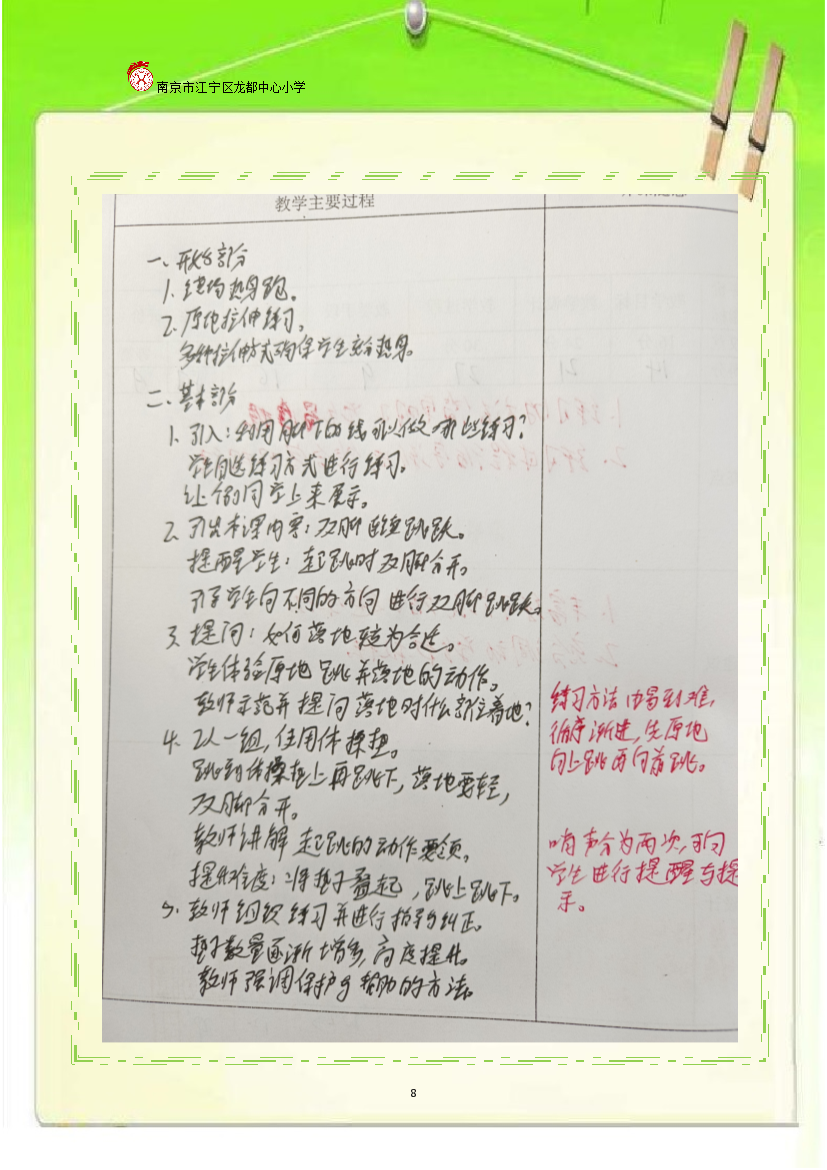 南京市江宁区龙都中心小学
教学主要过程
一、开始部分
1. 绕场热身跑。
2. 原地拉伸练习。
多种拉伸方式确保学生充分热身。
二、基本部分
1. 引入：利用脚下的线可以做哪些练习？
学生自选练习方式进行练习。
让个别同学上来展示。
2. 引出本课内容：双脚连续跳跃。
提醒学生：起跳时双脚分开。
引导学生向不同的方向进行双脚跳跃。
3. 提问：如何落地较为合适。
学生体验原地跳并落地的动作。
教师示范并提问落地时什么部位着地？
4. 2人一组，使用体操垫。
跳到体操垫上再跳下，落地要轻，
双脚分开。
教师讲解起跳的动作要领。
提升难度：将垫子叠起，跳上跳下。
5. 教师组织练习并进行指导纠正。
垫子数量逐渐增多，高度提升。
教师强调保护与帮助的方法。
练习方法由易到难，
循序渐进，先原地
向上跳再向前跳。
哨声分为两次，可向
学生进行提醒与提
示。
8